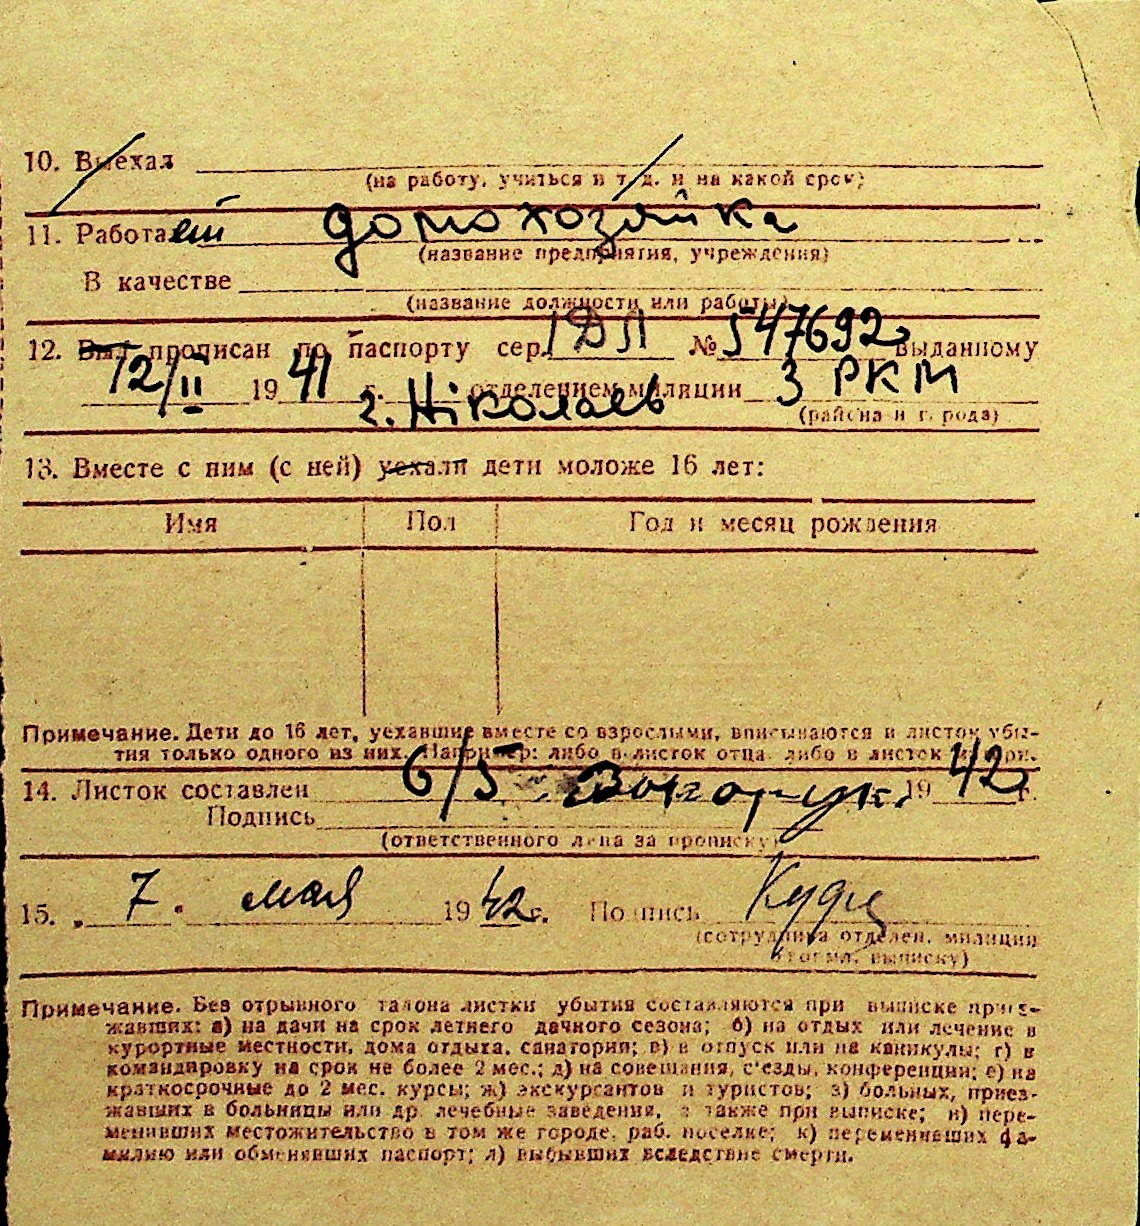 10. Выехал
(на работу, учиться и т. д. и на какой срок)
11. Работает домохозяйка
(название предприятия, учреждения)
В качестве
(название должности или работы)
12. Был прописан по паспорту сер. IДЛ № 547692 выданному
12/II 1941 г. отделением милиции 3 РКМ
г. Ніколаев (района и города)
13. Вместе с ним (с ней) уехали дети моложе 16 лет:
Имя Пол Год и месяц рождения
Примечание. Дети до 16 лет, уехавшие вместе со взрослыми, вписываются в листок убы-
тия только одного из них. Например: либо в листок отца либо в листок
14. Листок составлен 6/5 1942 г.
Подпись
(ответственного лица за прописку)
15. „ 7 " мая 1942 г. Подпись
(сотрудника отделен. милиции
выписку)
Примечание. Без отрывного талона листки убытия составляются при выписке приез-
жавших: а) на дачи на срок летнего дачного сезона; б) на отдых или лечение в
курортные местности, дома отдыха, санатории; в) в отпуск или на каникулы; г) в
командировку на срок не более 2 мес.; д) на совещания, с'езды, конференции; е) на
краткосрочные до 2 мес. курсы; ж) экскурсантов и туристов; з) больных, приез-
жавших в больницы или др. лечебные заведения, а также при выписке; и) пере-
менивших местожительство в том же городе, раб. поселке; к) переменивших фа-
милию или обменявших паспорт; л) выбывших вследствие смерти.